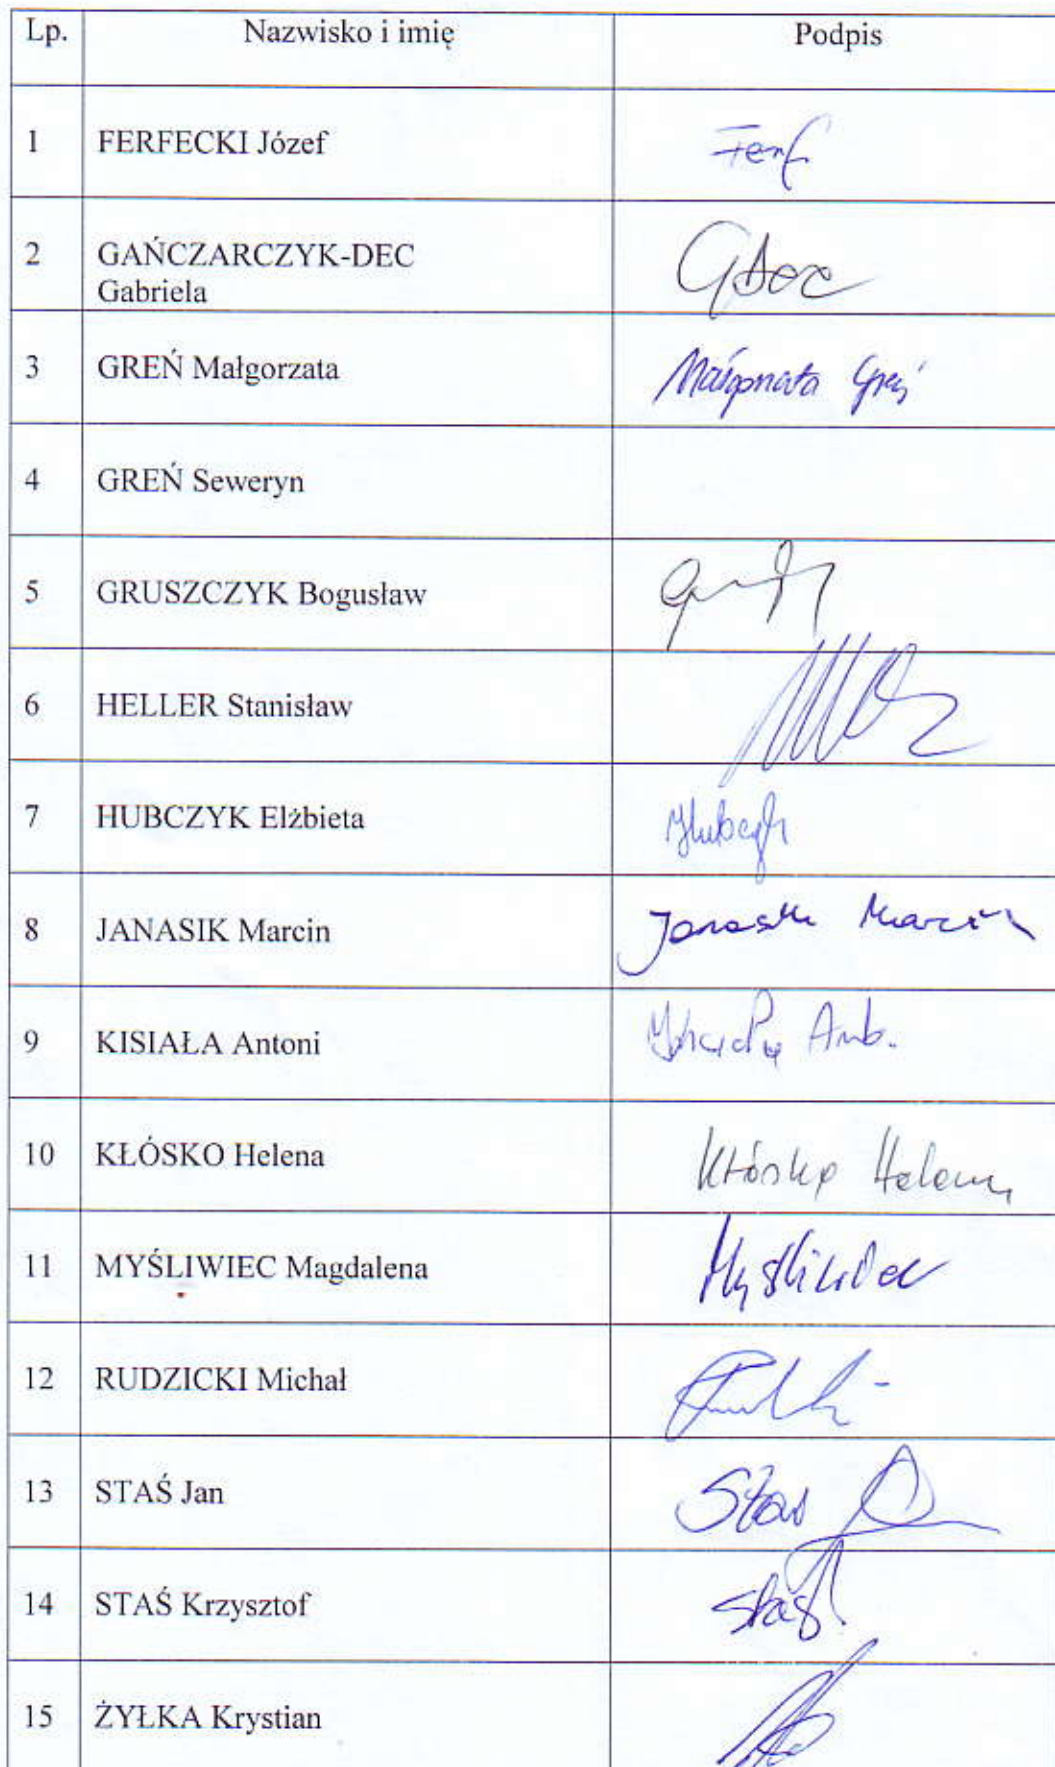 Lp. Nazwisko i imię Podpis
1 FERFECKI Józef Ferf
2 GAŃCZARCZYK-DEC GDec
Gabriela
3 GREŃ Małgorzata Małgorzata Greń
4 GREŃ Seweryn
5 GRUSZCZYK Bogusław
6 HELLER Stanisław
7 HUBCZYK Elżbieta Hubczyk
8 JANASIK Marcin Janasik Marcin
9 KISIAŁA Antoni Ant.
10 KŁÓSKO Helena Kłósko Helena
11 MYŚLIWIEC Magdalena Myśliwiec
12 RUDZICKI Michał
13 STAŚ Jan Staś
14 STAŚ Krzysztof Staś
15 ŻYŁKA Krystian